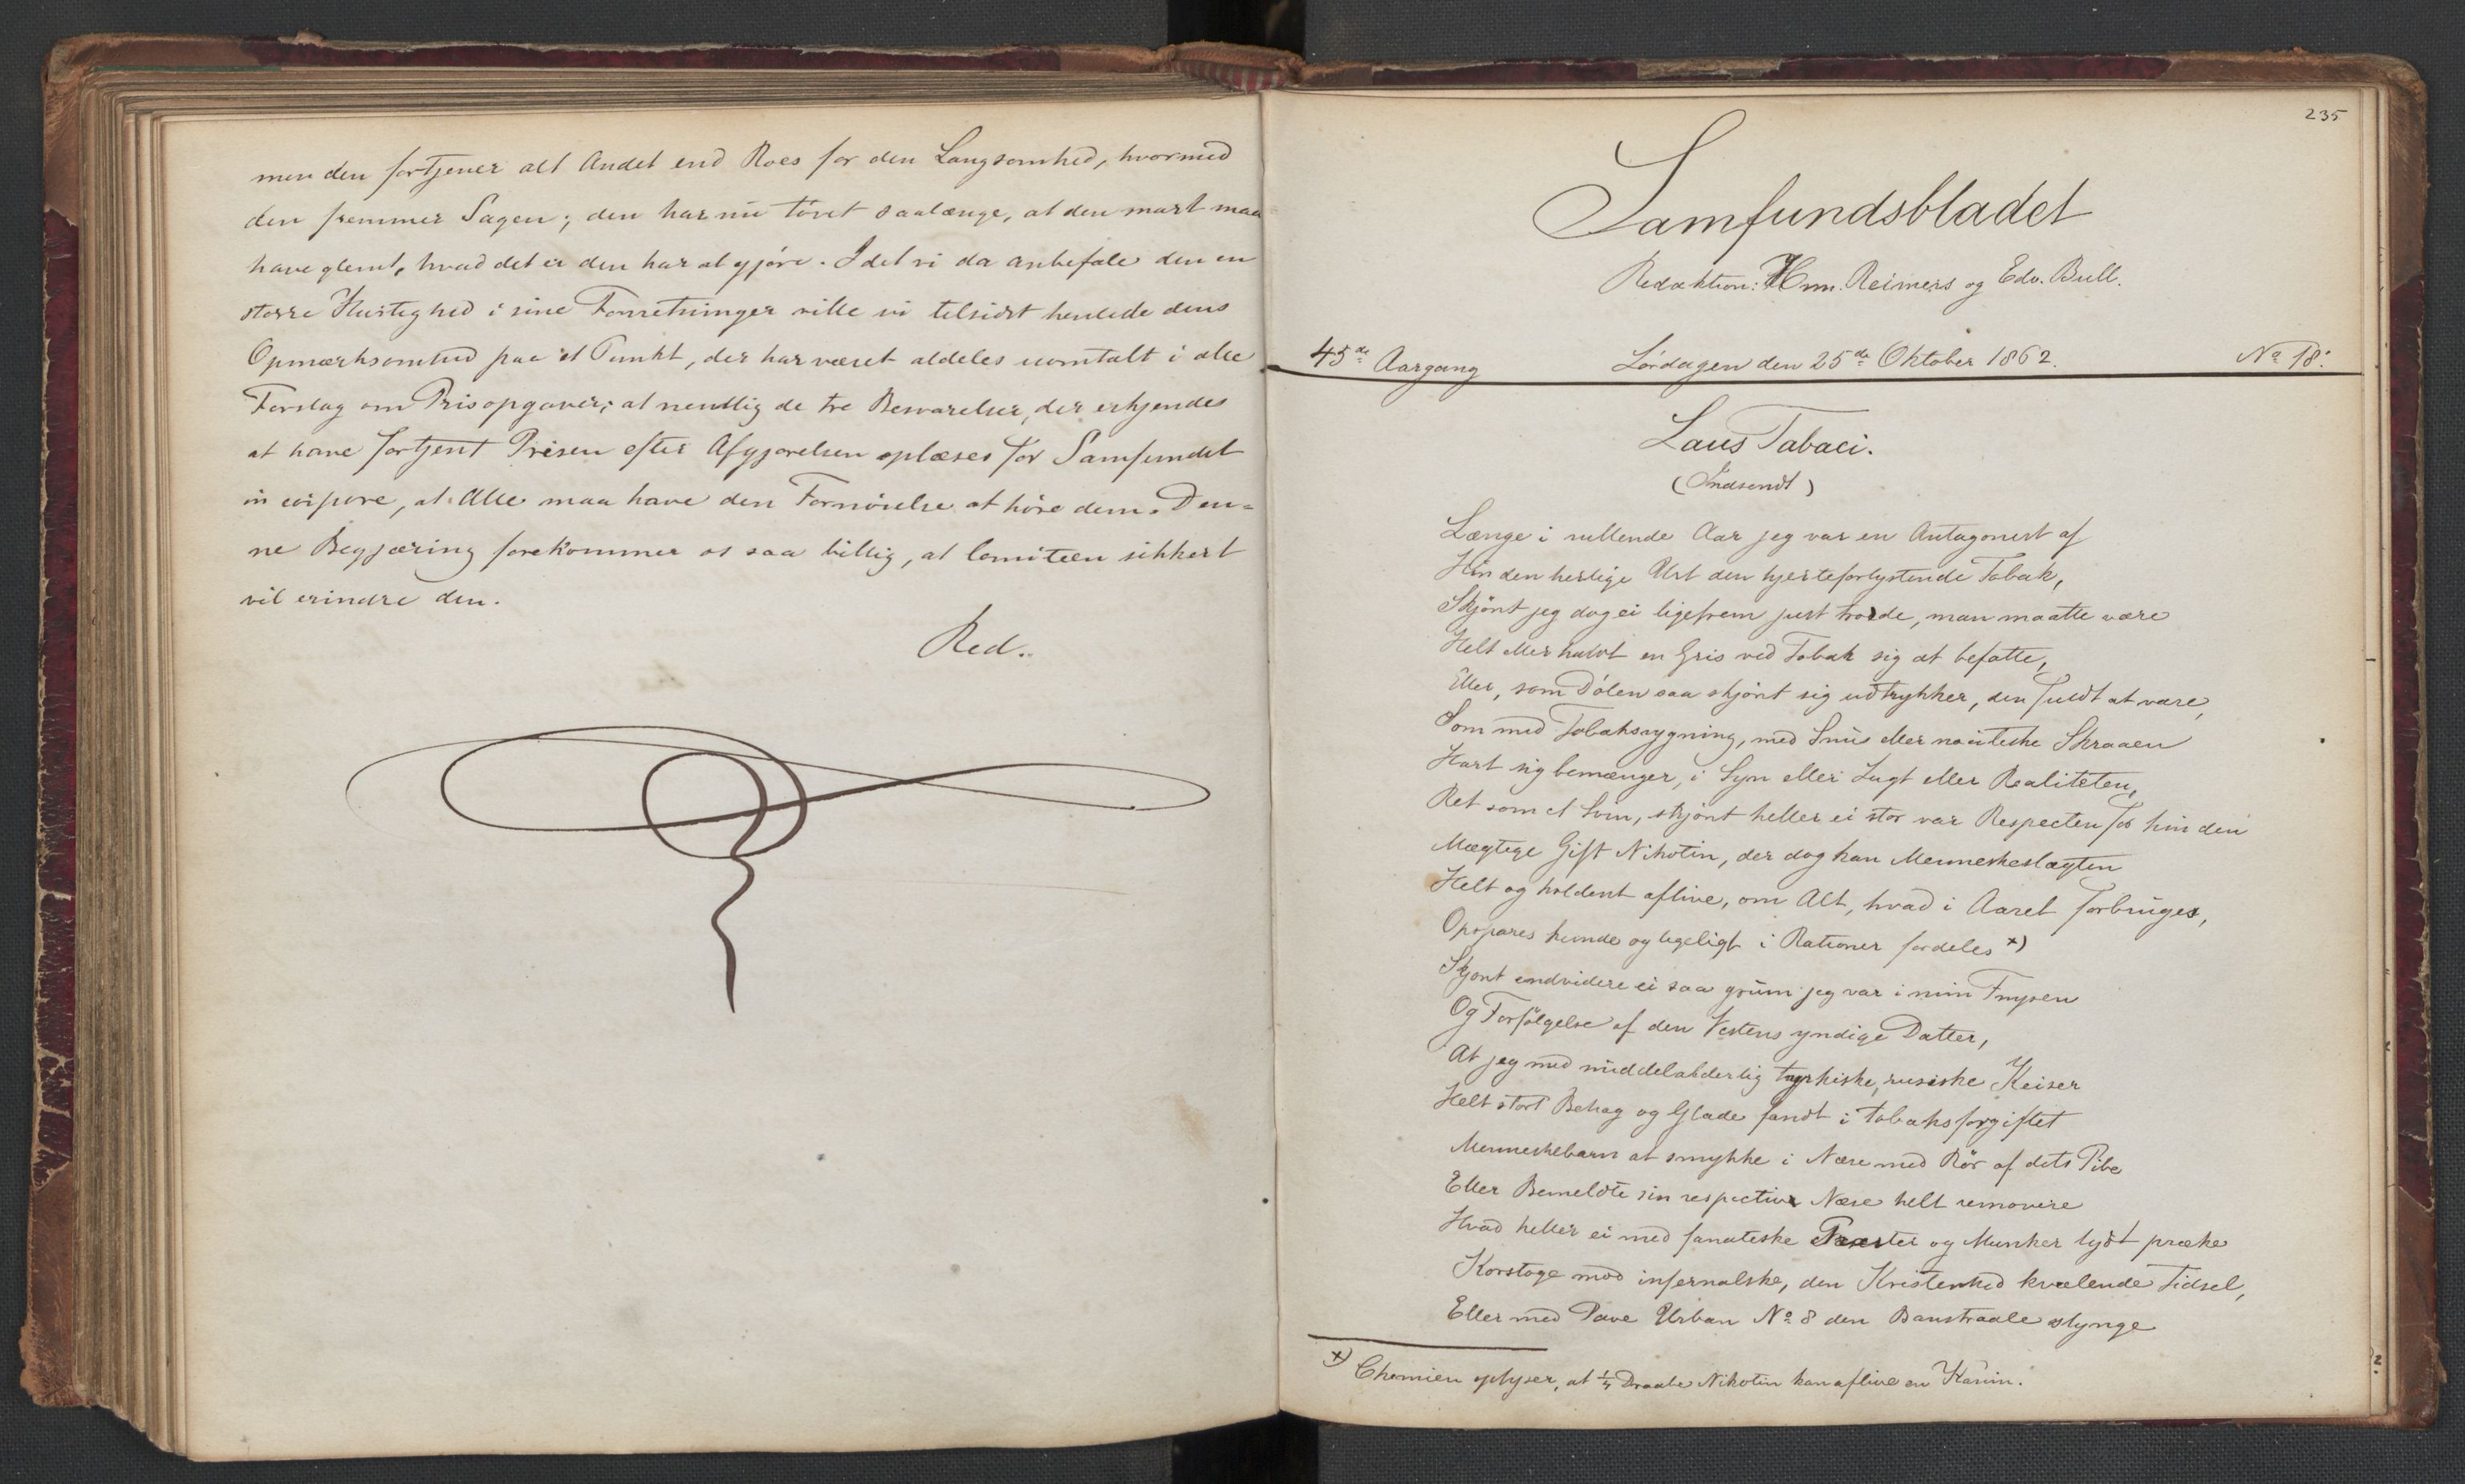 men den fortjener alt Andet end Roes for den Langsomhed, hvormed
den fremmer Sagen; den har nu tövet saalænge, at den snart maa
have glemt, hvad det er den har at gjöre. Idet vi da anbefale den en
större Hurtighed i sine Forretninger ville vi tilsidst henlede dens
Opmærksomhed paa et Punkt, der har været aldeles uomtalt i alle
Forslag om Prisopgaver; at nemlig de tre Besvarelser, der erkjendes
at have fortjent Prisen efter Afgjörelsen oplæses for Samfundet
in corpore, at Alle maa have den Fornöielse at höre dem. Den-
ne Begjæring forekommer os saa billig, at Comiteen sikkert
vil erindre den.
Red.
235
Samfundsbladet
Redaktion: Hnn. Reimers og Edv. Bull.
45de Aargang Lördagen den 25de Oktober 1862. No 18.
Laus Tabaci.
(Indsendt)
Længe i rullende Aar jeg var en Antagonist af
Hin den herlige Urt den hjerteforlystende Tobak,
Skjönt jeg dog ei ligefrem just troede, man maatte være
Helt eller halvt en Gris ved Tobak sig at befatte,
Eller, som Dölen saa skjönt sig udtrykker, den fuldt at være,
Som med Tobaksrygning, med Snus eller Skraaen
Hart sig bemænger, i Syn eller Lugt eller Realiteten,
Ret som et Svin, skjönt heller ei stor var Respecten for hin den
Mægtige Gift Nikotin, der dog kan Menneskeslægten
Helt og holdent aflive, om Alt, hvad i Aaret forbruges,
Opspares kunde og ligeligt i Rationer fordeles x)
Skjönt endvidere ei saa grum jeg var i min Fnysen
Og Forfölgelse af den Vestens yndige Datter,
At jeg med middelalderlig tyrkiske, russiske Keiser
Helt stort Behag og Glæde fandt i tobaksforgiftet
Menneskebarn at smykke i Næse med Rör af dets Pibe
Eller Bemeldte sin respective Næse helt removere
Hvad heller ei med fanatiske Præster og Munker lydt præke
Korstoge mod infernalske, den Kristenhed kvælende Tidsel,
Eller med Pave Urban No 8 den Banstraale slynge
x) Chemien oplyser, at 1/4 Draabe Nikotin kan aflive en Kanin.